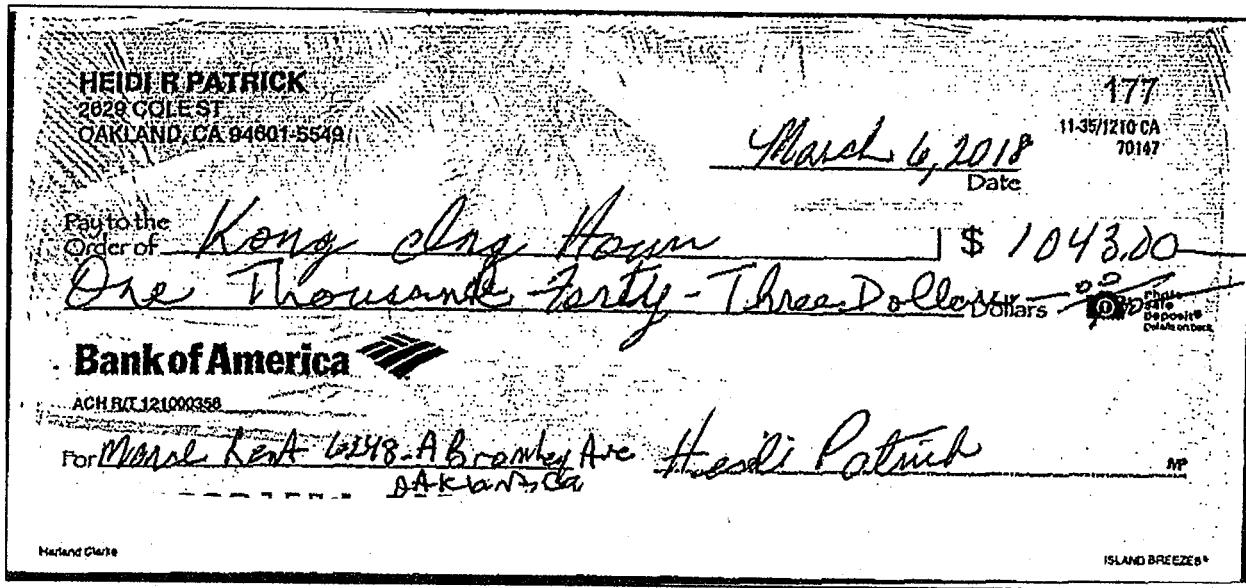 HEIDI R PATRICK
2629 COLE ST
OAKLAND, CA 94601-5549
177
11-35/1210 CA
70147
March 6, 2018
Date
Pay to the
Order of Kong Ing Hoyn $ 1043.00
One Thousand Forty-Three Dollars Dollars
Photo
Safe
Deposit®
Details on back
Bank of America
ACH R/T 121000358
For Rent 6248-A Bromley Ave Heidi Patrick MP
Oakland, Ca
Harland Clarke
ISLAND BREEZES®